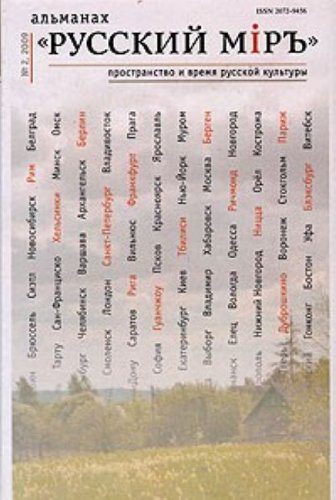 ISSN 2072-9456
альманах
«РУССКИЙ МIРЪ»
№ 2, 2009
пространство и время русской культуры
Брюссель Сиэтл Новосибирск Рим Белград
Тарту Сан-Франциско Хельсинки Минск Омск
бург Челябинск Варшава Архангельск Берлин
Смоленск Лондон Санкт-Петербург Владивосток
Дону Саратов Рига Вильнюс Франкфурт Прага
София Гуанчжоу Псков Красноярск Ярославль
Екатеринбург Киев Тбилиси Нью-Йорк Муром
Выборг Владимир Хабаровск Москва Берген
Елец Вологда Одесса Ричмонд Новгород
ополь Нижний Новгород Ницца Орёл Кострома
Дуброшкино Воронеж Стокгольм Париж
Гонконг Бостон Уфа Блэксбург Витебск